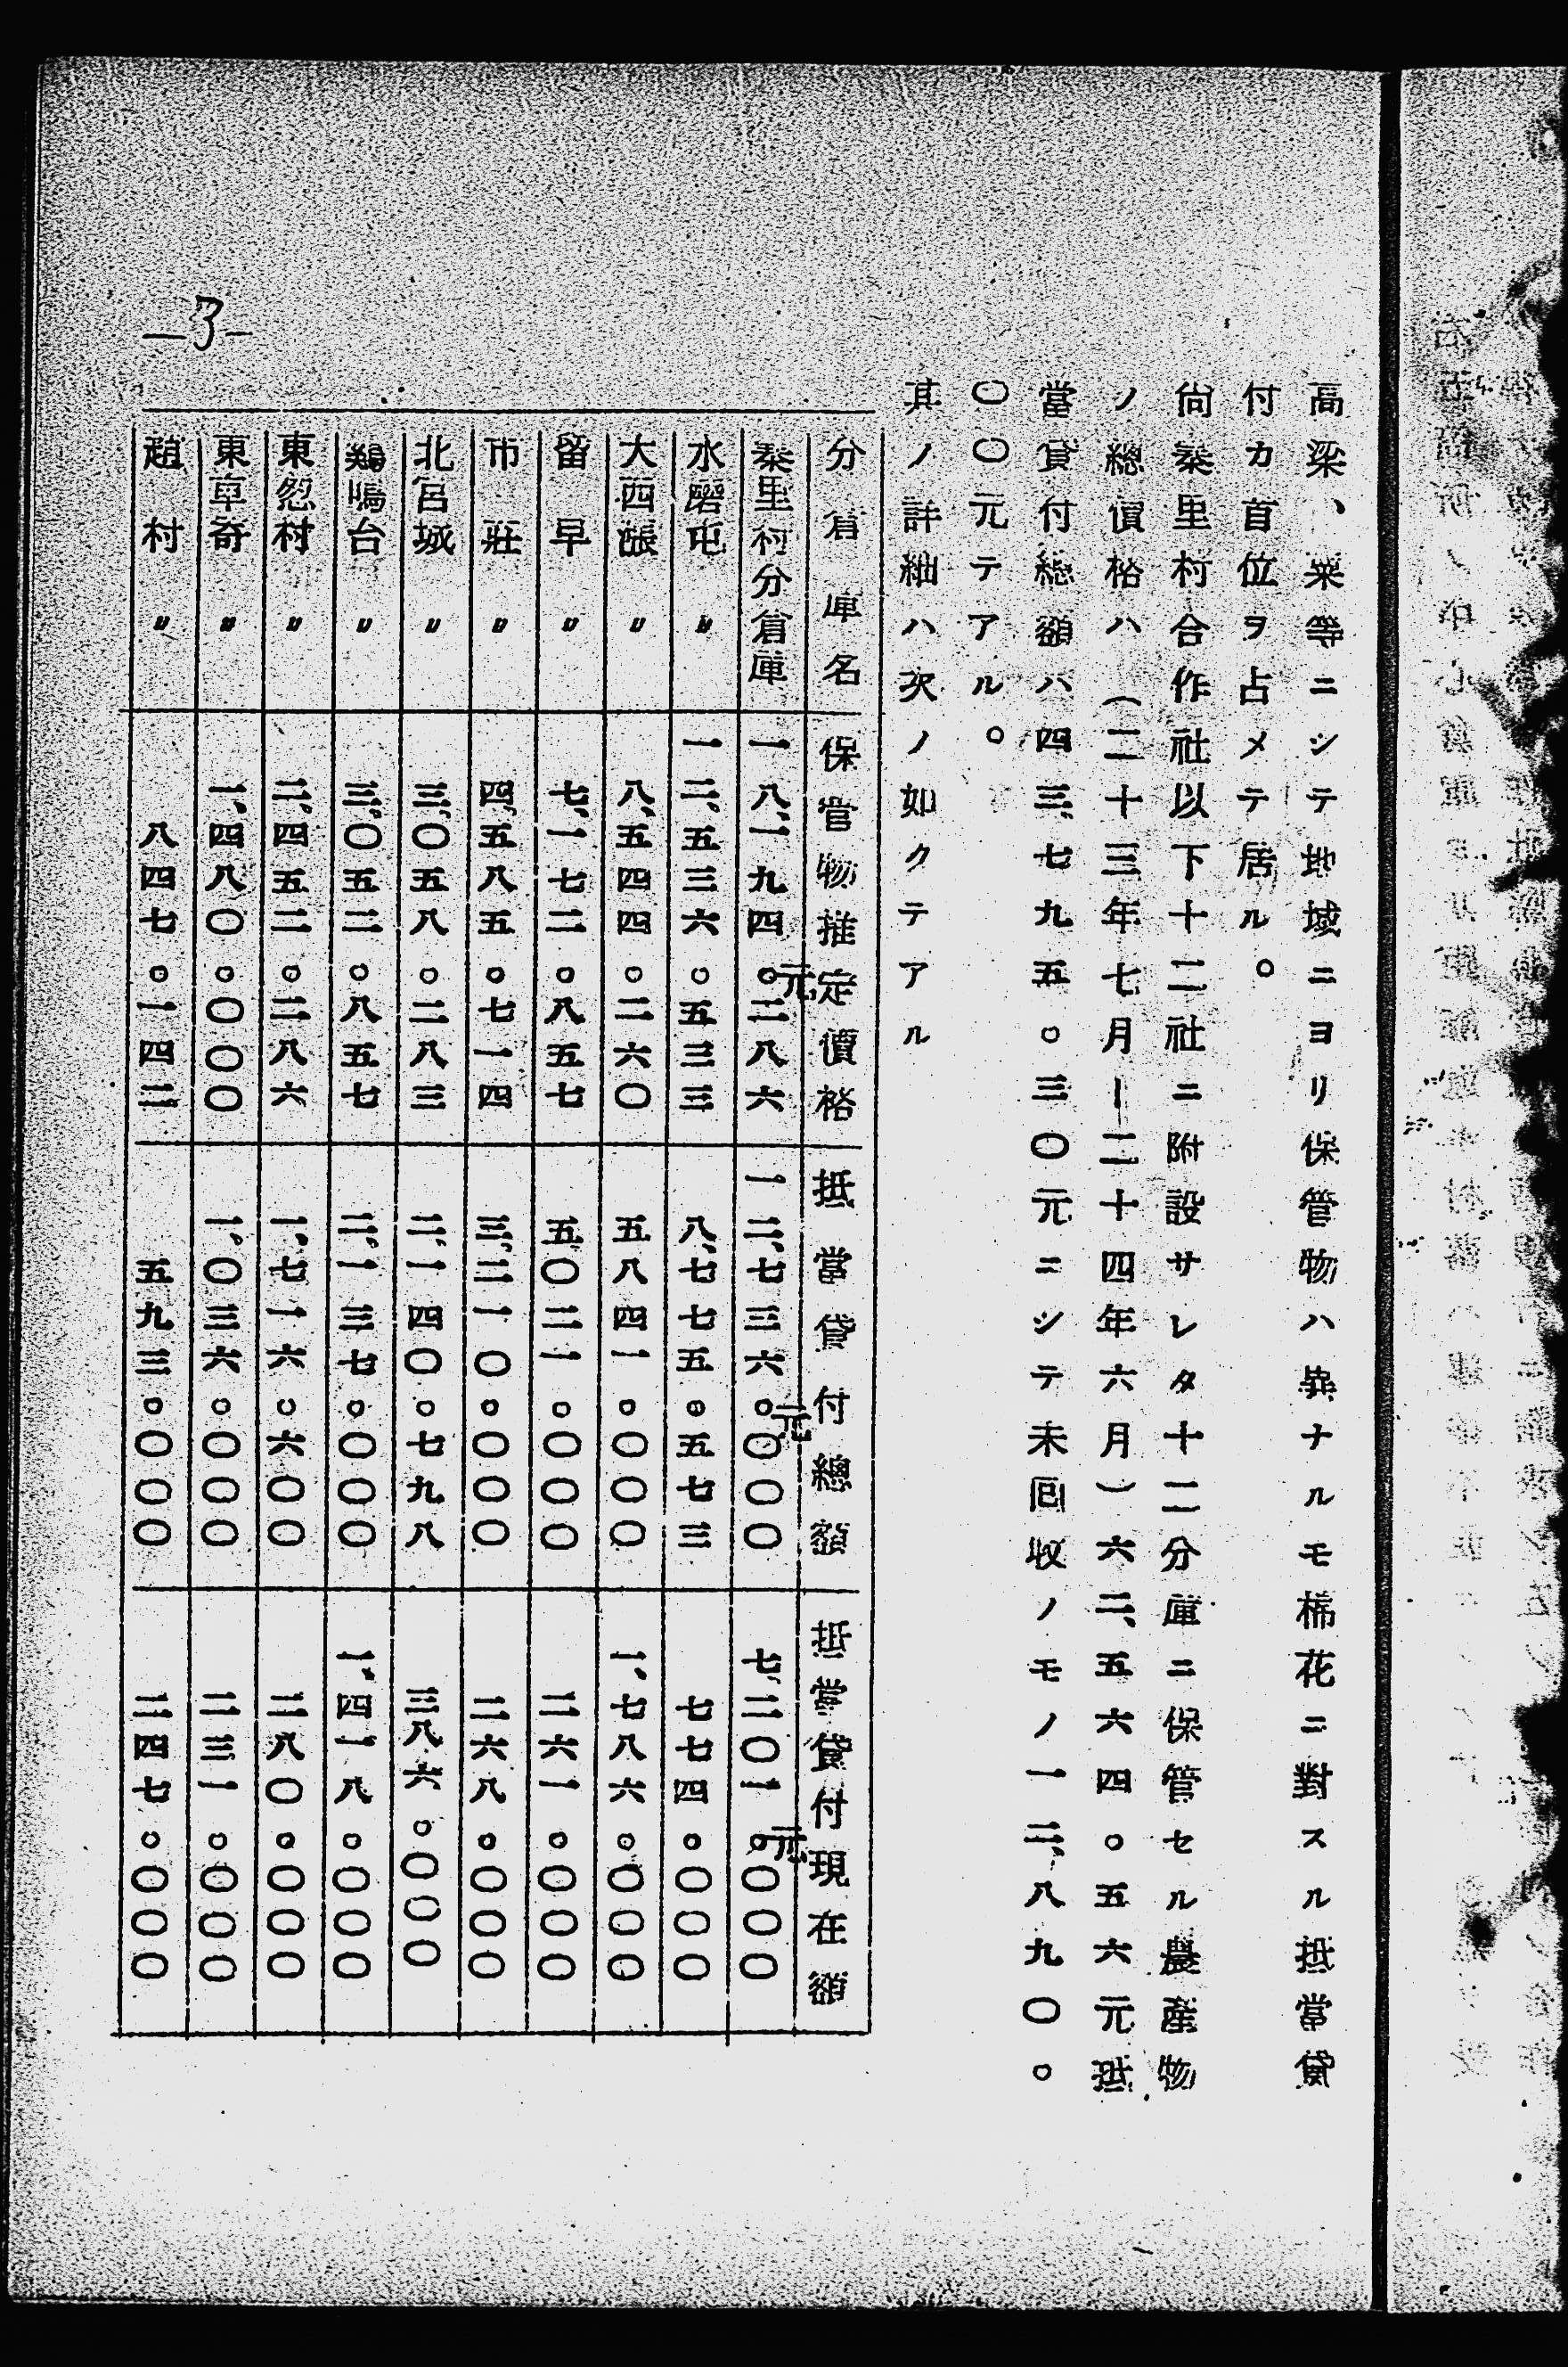 高梁、粟等ニシテ地域ニヨリ保管物ハ異ナルモ棉花ニ對スル抵當貸
付カ首位ヲ占メテ居ル。
尙秦里村合作社以下十二社ニ附設サレタ十二分庫ニ保管セル農產物
ノ總價格ハ(二十三年七月ー二十四年六月)六二、五六四。五六元抵
當貸付總額ハ四三、七九五。三〇元ニシテ未囘收ノモノ一二、八九〇。
〇〇元テアル。
其ノ詳細ハ次ノ如クテアル
分倉庫名 保管物推定價格 抵當貸付總額 抵當貸付現在額
秦里村分倉庫 一八、一九四。二八六元 一二、七三六。〇〇〇元 七、二〇一。〇〇〇元
水磨屯〃 一二、五三六。五三三 八、七七五。五七三 七七四。〇〇〇
大西張〃 八、五四四。二六〇 五八四一。〇〇〇 一、七八六。〇〇〇
留早〃 七、一七二。八五七 五〇二一。〇〇〇 二六一。〇〇〇
市莊〃 四、五八五。七一四 三、二一〇。〇〇〇 二六八。〇〇〇
北宮城〃 三、〇五八。二八三 二、一四〇。七九八 三八六。〇〇〇
鷄鳴台〃 三、〇五二。八五七 二、一三七。〇〇〇 一、四一八。〇〇〇
東忽村〃 二、四五二。二八六 一、七一六。六〇〇 二八〇。〇〇〇
東車寄〃 一、四八〇。〇〇〇 一、〇三六。〇〇〇 二三一。〇〇〇
趙村〃 八四七。一四二 五九三。〇〇〇 二四七。〇〇〇
—3—